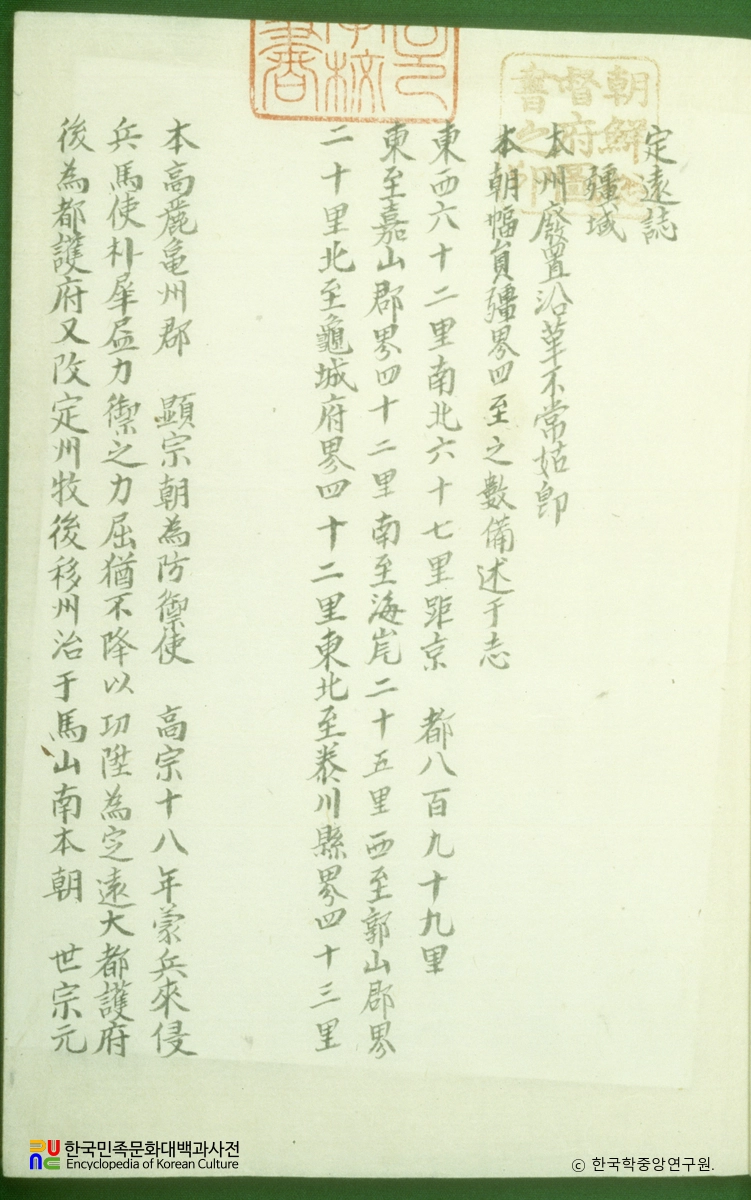 定遠誌
疆域
本州廢置沿革不常姑卽
本朝幅員疆界四至之數備述于志
東西六十二里南北六十七里距京 都八百九十九里
東至嘉山郡界四十二里南至海岸二十五里西至郭山郡界
二十里北至龜城府界四十二里東北至泰川縣界四十三里
本高麗龜州郡 顯宗朝為防禦使 高宗十八年蒙兵來侵
兵馬使朴犀盡力禦之力屈猶不降以功陞為定遠大都護府
後為都護府又改定州牧後移州治于馬山南本朝 世宗元
朝鮮總
督府圖
書之印
한국민족문화대백과사전
Encyclopedia of Korean Culture
ⓒ 한국학중앙연구원.